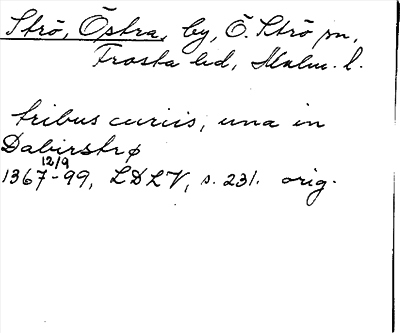 Strö, Östra, by, Ö. Strö sn,
Frosta hd, Malm. l.
tribus curiis, una in
Dabirstrø
1367 12/9 -99, LDLV, s. 231. orig.